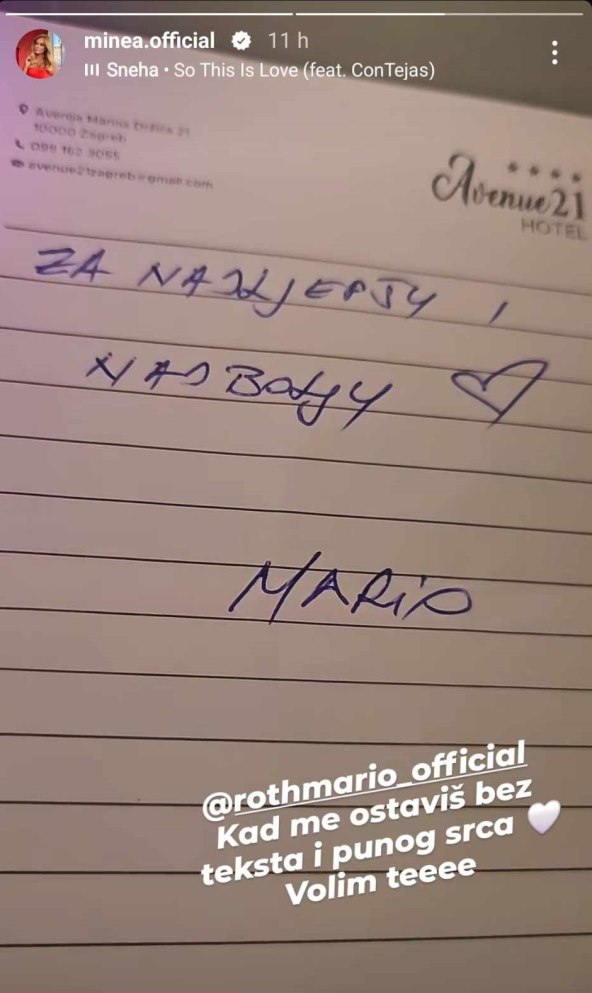 minea.official 11 h
Sneha • So This Is Love (feat. ConTejas)
Avenija Marina Držića 21
10000 Zagreb
099 162 9055
avenue21zagreb@gmail.com
Avenue21
HOTEL
ZA NAJLJEPŠU I
NAJBOLJU
MARIO
@rothmario_official
Kad me ostaviš bez
teksta i punog srca
Volim teeee